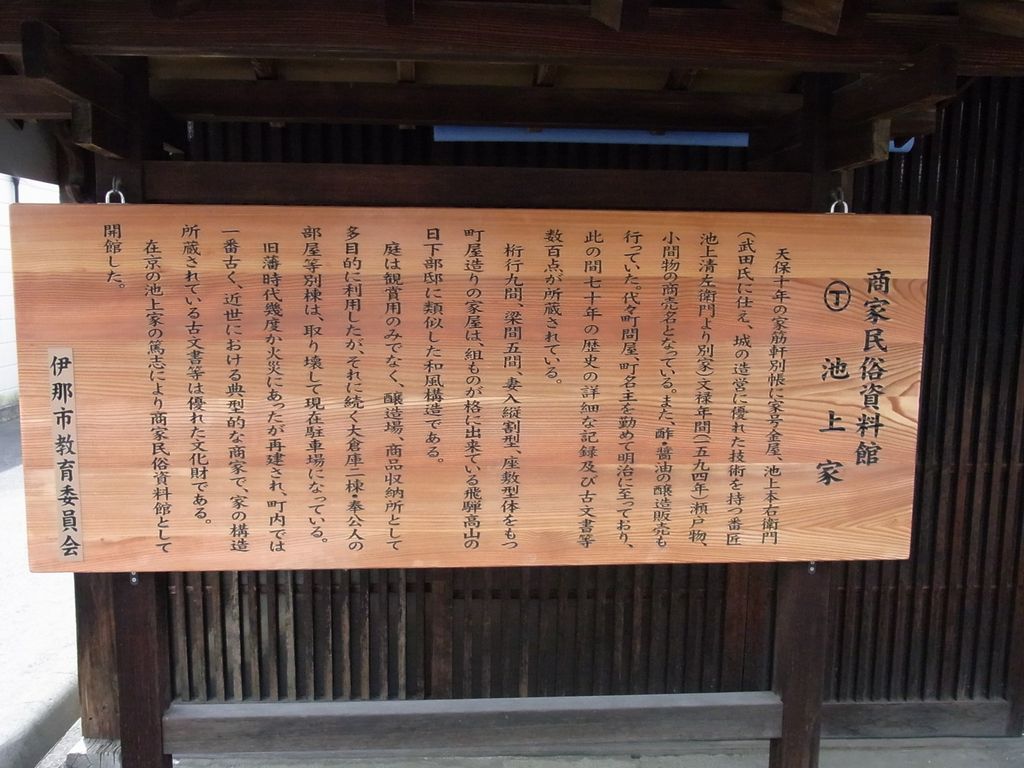 商家民俗資料館
丁 池上家
天保十年の家筋軒別帳に家号金屋、池上本右衛門
(武田氏に仕え、城の造営に優れた技術を持つ番匠
池上清左衛門より別家)文禄年間(一五九四年)瀬戸物、
小間物の商売名となっている。また、酢・醤油の醸造販売も
行っていた。代々町問屋、町名主を勤めて明治に至っており、
此の間七十年の歴史の詳細な記録及び古文書等
数百点が所蔵されている。
桁行九間、梁間五間、妻入縦割型、座敷型体をもつ
町屋造りの家屋は、組ものが格に出来ている飛騨高山の
日下部邸に類似した和風構造である。
庭は観賞用のみでなく、醸造場、商品収納所として
多目的に利用したが、それに続く大倉庫二棟・奉公人の
部屋等別棟は、取り壊して現在駐車場になっている。
旧藩時代幾度か火災にあったが再建され、町内では
一番古く、近世における典型的な商家で、家の構造
所蔵されている古文書等は優れた文化財である。
在京の池上家の篤志により商家民俗資料館として
開館した。
伊那市教育委員会